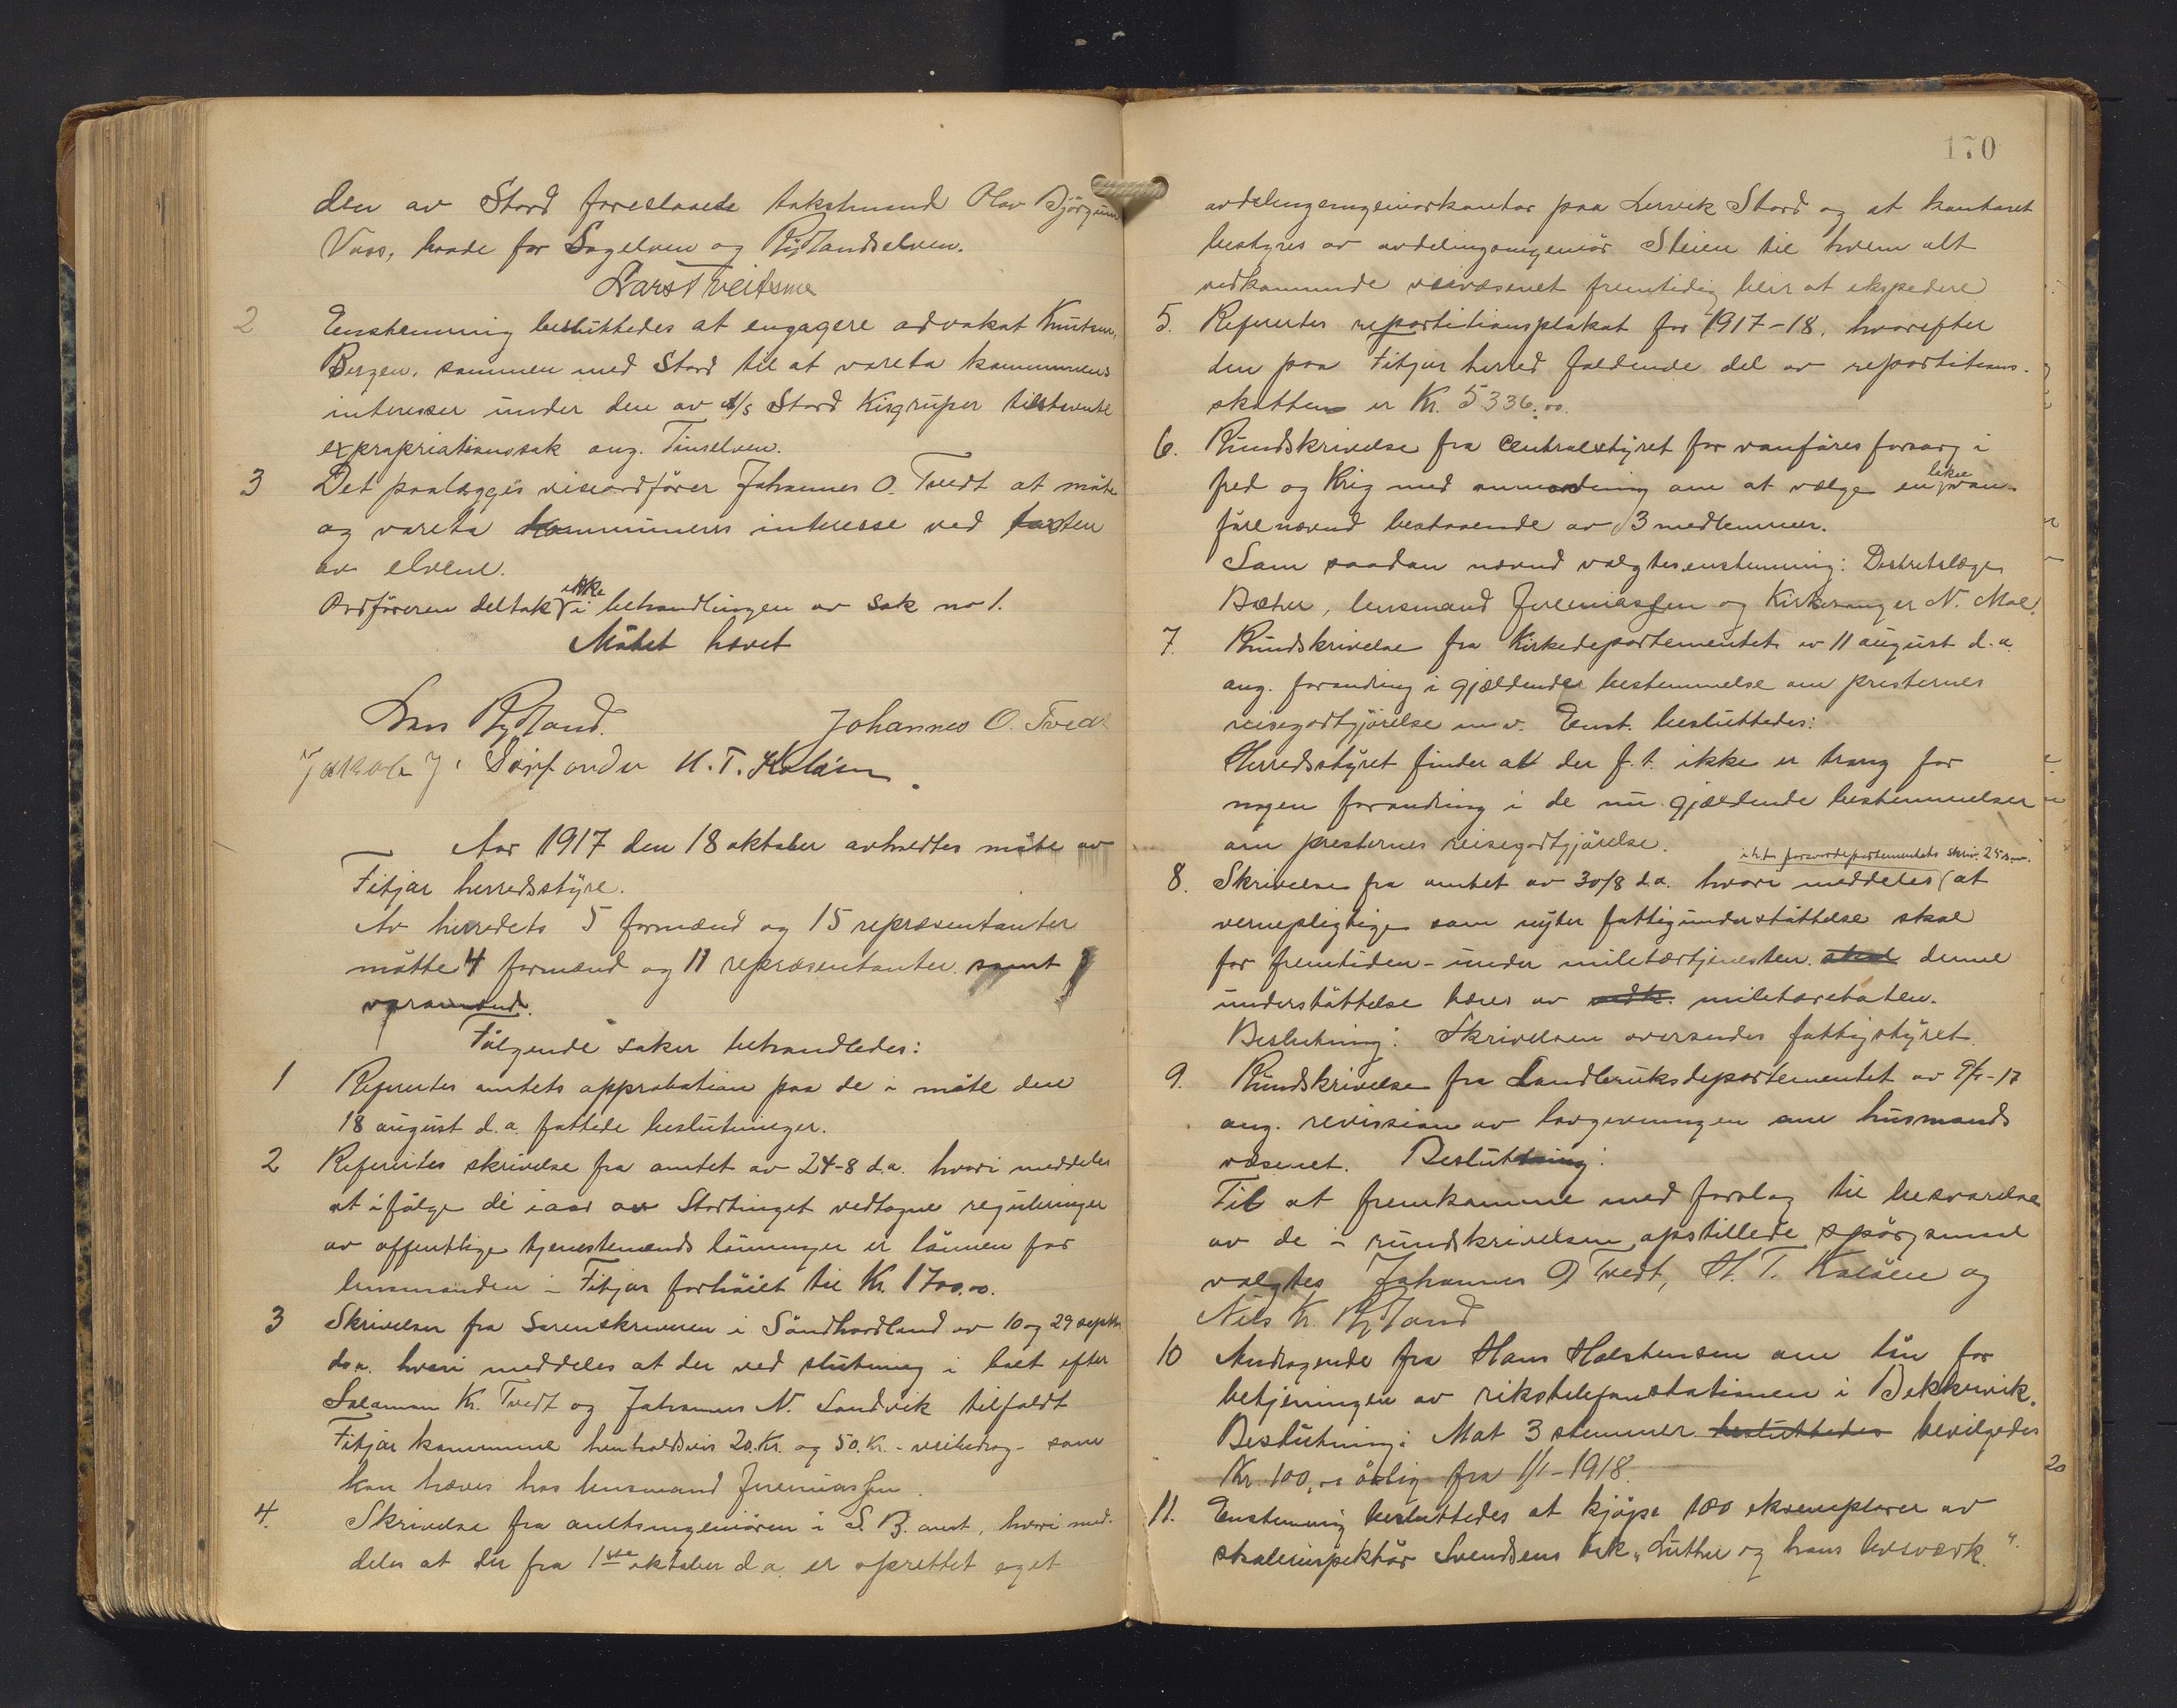 den av Stord foreslaaede takstmand Olav Björgum
Voss, baade for Sagelven og Rydlandselven.
Lars Tveitsme
2 Enstemmig besluttedes at engagere advokat Knutsen,
Bergen, sammen med Stord til at vareta kommunens
interesser under den av A/S Stord Kisgruper tilstevnte
expropriationssak ang. Tinselven.
3 Det paalægges viseordfører Johannes O. Tvedt at möte
og vareta kommunens interesse ved taxten
av elvene.
Ordföreren deltok ikke i behandlingen av sak no 1.
Mötet hævet
Lars Rydland. Johannes O. Tvedt
Jakob J. H. T. Kalöen
Aar 1917 den 18 oktober avholdtes möte av
Fitjar herredsstyre.
Av herredets 5 formænd og 15 repræsentanter
mötte 4 formænd og 11 repræsentanter samt
varamænd.
Fölgende saker behandledes:
1 Refertes amtets approbation paa de i möte den
18 august d.a. fattede beslutninger.
2 Refertes skrivelse fra amtet av 24-8 d.a. hvori meddeles
at ifölge de iaar av Stortinget vedtagne reguleringer
av offentlige tjenestemænds lönninger er lönnen for
lensmanden i Fitjar forhöiet til Kr. 1700,00.
3 Skrivelser fra Sorenskriveren i Söndhordland av 10 og 29 septbr
d.a. hvori meddeles at der ved slutning i boet efter
Salamon Kr. Tvedt og Johannes N. Sandvik tilfaldt
Fitjar kommune henholdsvis 20. Kr. og 50. Kr. - veibidrag - som
kan hæves hos lensmand Jeremiassen.
4. Skrivelse fra amtsingeniören i S. B. amt, hvori med-
deles at der fra 1ste oktober d.a. er oprettet eget
170
avdelingsingeniörkontor paa Lervik Stord og at kontoret
bestyres av avdelingsingeniör Steien til hvem alt
vedkommende veivæsenet fremtidig blir at ekspedere
5. Refertes repartitionsplakat for 1917-18, hvorefter
den paa Fitjar herred faldende del av repartitions-
skatten er Kr. 5336,00.
6. Rundskrivelse fra Centralstyret for vanföres forsorg i
fred og Krig med anmodning om at vælge en lokal van-
förenævnd bestaaende av 3 medlemmer.
Som saadan nævnd valgtes enstemmig: Distriktslæge
Bæther, lensmand Jeremiassen og Kirkesanger N. Moe.
7. Rundskrivelse fra Kirkedepartementet av 11 august d.a.
ang. forandring i gjældende bestemmelse om presternes
reisegodtgjörelse m.v. Enst. besluttedes:
Herredsstyret finder at der f.t. ikke er trang for
nogen forandring i de nu gjældende bestemmelser
om presternes reisegodtgjörelse.
8. Skrivelse fra amtet av 30/8 d.a. hvori meddeles i h.t. forsvarsdepartementets skriv. 25 s.m. at
vernepligtige som nyter fattigunderstöttelse skal
for fremtiden - under militærtjenesten skal denne
understöttelse bæres av militæretaten.
Beslutning: Skrivelsen oversendes fattigstyret.
9. Rundskrivelse fra Landbruksdepartementet av -17
ang. revision av lovgivningen om husmands
væsenet. Beslutning:
Til at fremkomme med forslag til besvarelse
av de i rundskrivelsen opstillede spörgsmaal
valgtes Johannes O Tvedt, H. T. Kalöen og
Nils K. Rydland
10 Andragende fra Hans Halstensen om lön for
betjeningen av rikstelefonstationen i Bekkervik.
Beslutning: Mot 3 stemmer besluttedes bevilgedes
Kr. 100,00 årlig fra 1/1-1918.
11. Enstemmig besluttedes at kjöpe 100 eksemplarer av
skoleinspektör Svendsens bok „Luther og hans livsværk."
20